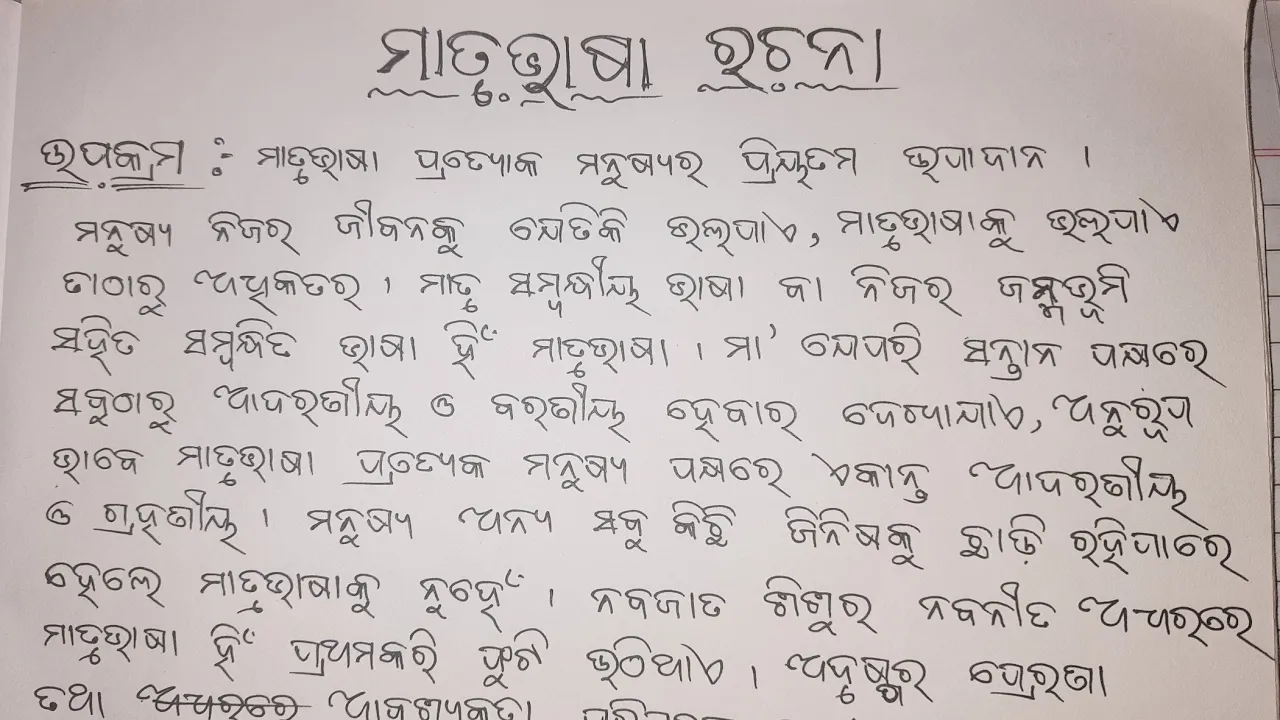 ମାତୃଭାଷା ରଚନା
ଉପକ୍ରମ :- ମାତୃଭାଷା ପ୍ରତ୍ୟେକ ମନୁଷ୍ୟର ପ୍ରିୟତମ ଉପାଦାନ ।
ମନୁଷ୍ୟ ନିଜର ଜୀବନକୁ ଯେତିକି ଭଲପାଏ, ମାତୃଭାଷାକୁ ଭଲପାଏ
ତାଠାରୁ ଅଧିକତର । ମାତୃ ସମ୍ବନ୍ଧୀୟ ଭାଷା ବା ନିଜର ଜନ୍ମଭୂମି
ସହିତ ସମ୍ବନ୍ଧିତ ଭାଷା ହିଁ ମାତୃଭାଷା । ମା' ଯେପରି ସନ୍ତାନ ପକ୍ଷରେ
ସବୁଠାରୁ ଆଦରଣୀୟ ଓ ବରଣୀୟ ହେବାର ଦେଖାଯାଏ, ଅନୁରୂପ
ଭାବେ ମାତୃଭାଷା ପ୍ରତ୍ୟେକ ମନୁଷ୍ୟ ପକ୍ଷରେ ଏକାନ୍ତ ଆଦରଣୀୟ
ଓ ଗ୍ରହଣୀୟ । ମନୁଷ୍ୟ ଅନ୍ୟ ସବୁ କିଛି ଜିନିଷକୁ ଛାଡ଼ି ରହିପାରେ
ହେଲେ ମାତୃଭାଷାକୁ ନୁହେଁ । ନବଜାତ ଶିଶୁର ନବନୀତ ଅଧରରେ
ମାତୃଭାଷା ହିଁ ପ୍ରଥମକରି ଫୁଟି ଉଠିଥାଏ । ଅଦୃଷ୍ଟର ପ୍ରେରଣା
ତଥା ଆବଶ୍ୟକତା